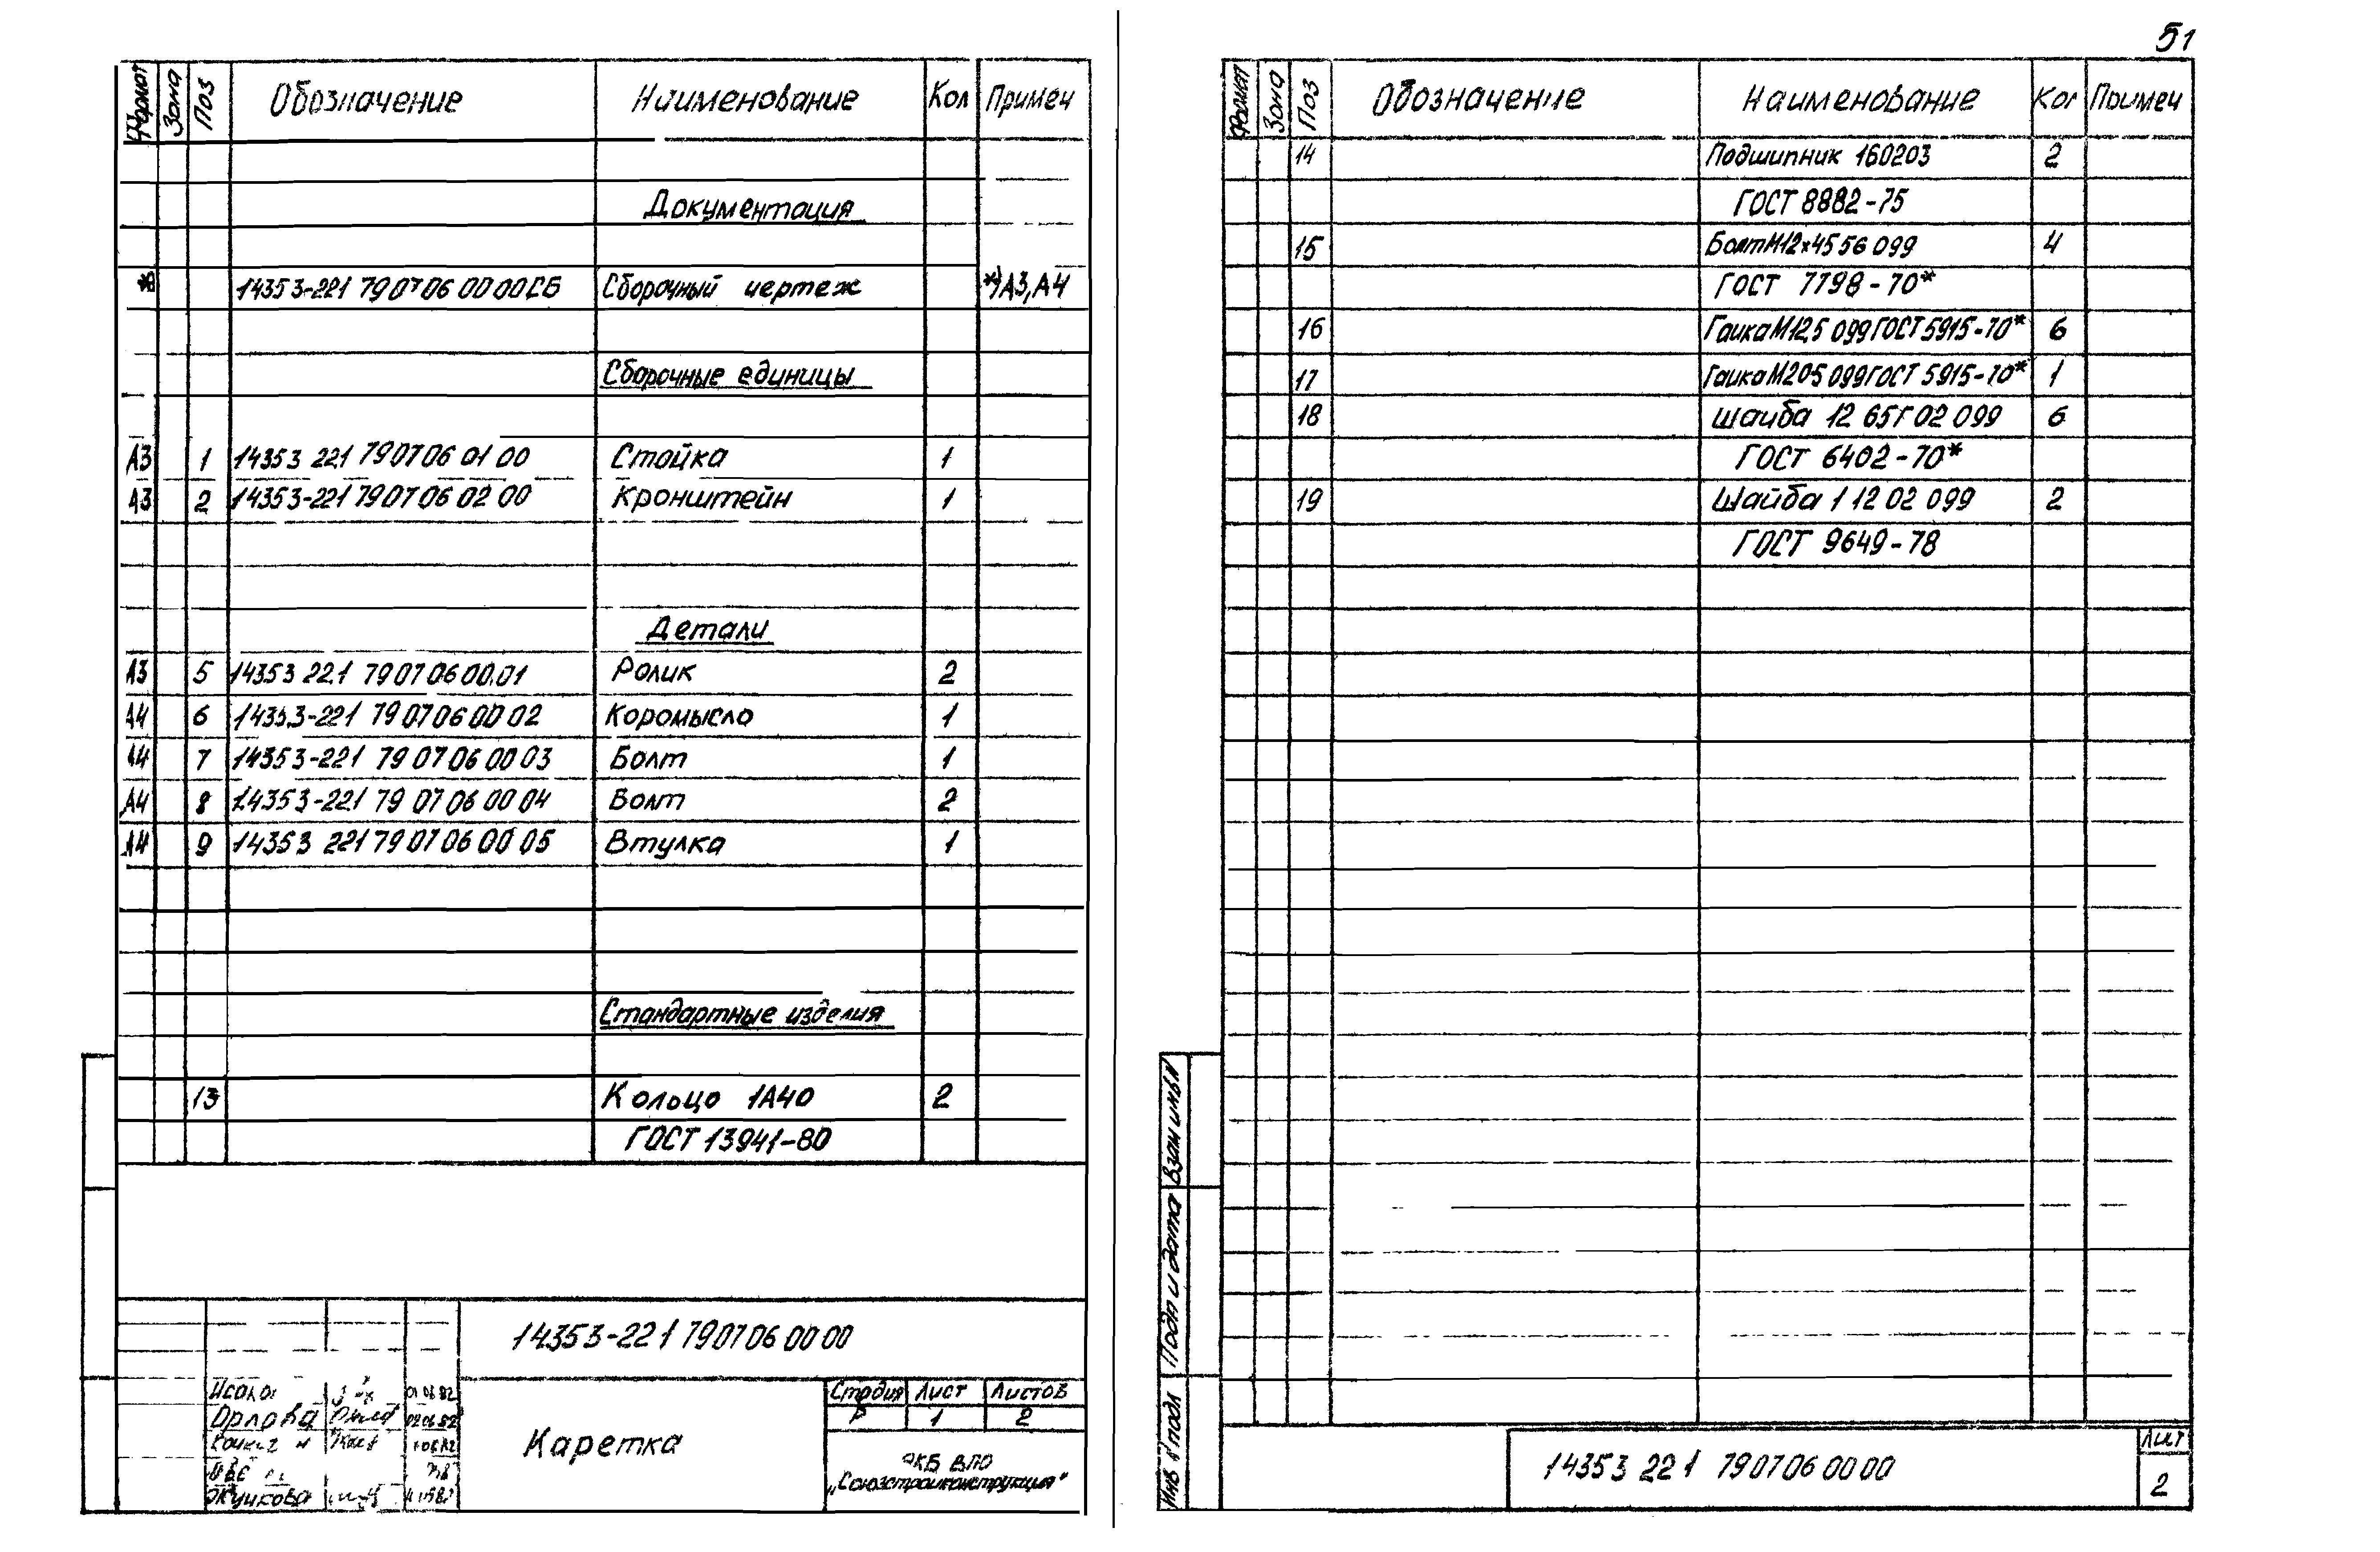 51
Формат Зона Поз Обозначение Наименование Кол Примеч
Документация
*) 14353-221 79 07 06 00 00 СБ Сборочный чертеж *)А3,А4
Сборочные единицы
А3 1 14353 221 79 07 06 01 00 Стойка 1
А3 2 14353-221 79 07 06 02 00 Кронштейн 1
Детали
А3 5 14353 221 79 07 06 00.01 Ролик 2
А4 6 14353-221 79 07 06 00 02 Коромысло 1
А4 7 14353-221 79 07 06 00 03 Болт 1
А4 8 14353-221 79 07 06 00 04 Болт 2
А4 9 14353 221 79 07 06 00 05 Втулка 1
Стандартные изделия
13 Кольцо 1А40 2
ГОСТ 13941-80
14353-221 79 07 06 00 00
Орлова
Каретка
Стадия Лист Листов
Р 1 2
ВПО
„Союзстройконструкция"
Формат Зона Поз Обозначение Наименование Кол Примеч
14 Подшипник 160203 2
ГОСТ 8882-75
15 Болт М12×45 56 099 4
ГОСТ 7798-70*
16 Гайка М12,5 099 ГОСТ 5915-70* 6
17 Гайка М20 5 099 ГОСТ 5915-70* 1
18 Шайба 12 65Г 02 099 6
ГОСТ 6402-70*
19 Шайба 1 12 02 099 2
ГОСТ 9649-78
Взам инв N
Подп и дата
Инв N подл
14353 221 79 07 06 00 00
Лист
2